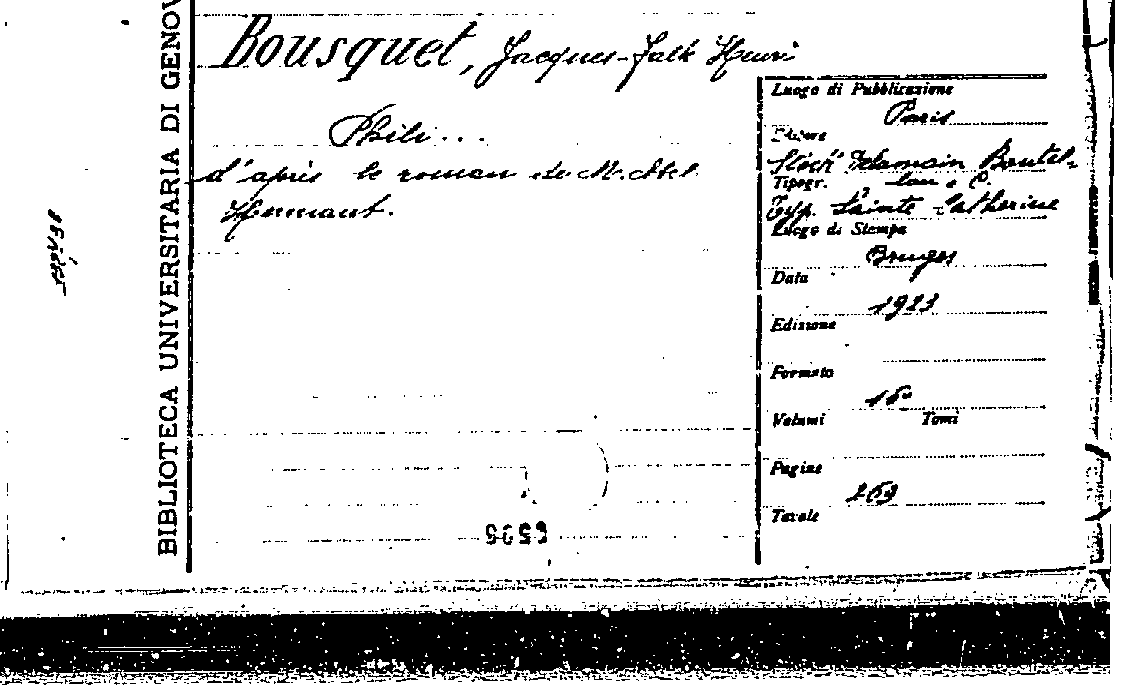 BIBLIOTECA UNIVERSITARIA DI GENOV
Bousquet, Jacques-Falk Henri
Phili...
d'après le roman de M. Abel
Hermant.
Luogo di Pubblicazione
Paris
Editore
Stock Delamain Boutel-
leau e C.
Tipogr.
Typ. Sainte Catherine
Luogo di Stampa
Bruges
Data
1923
Edizione
Formato
16°
Volumi Tomi
Pagine
Tavole